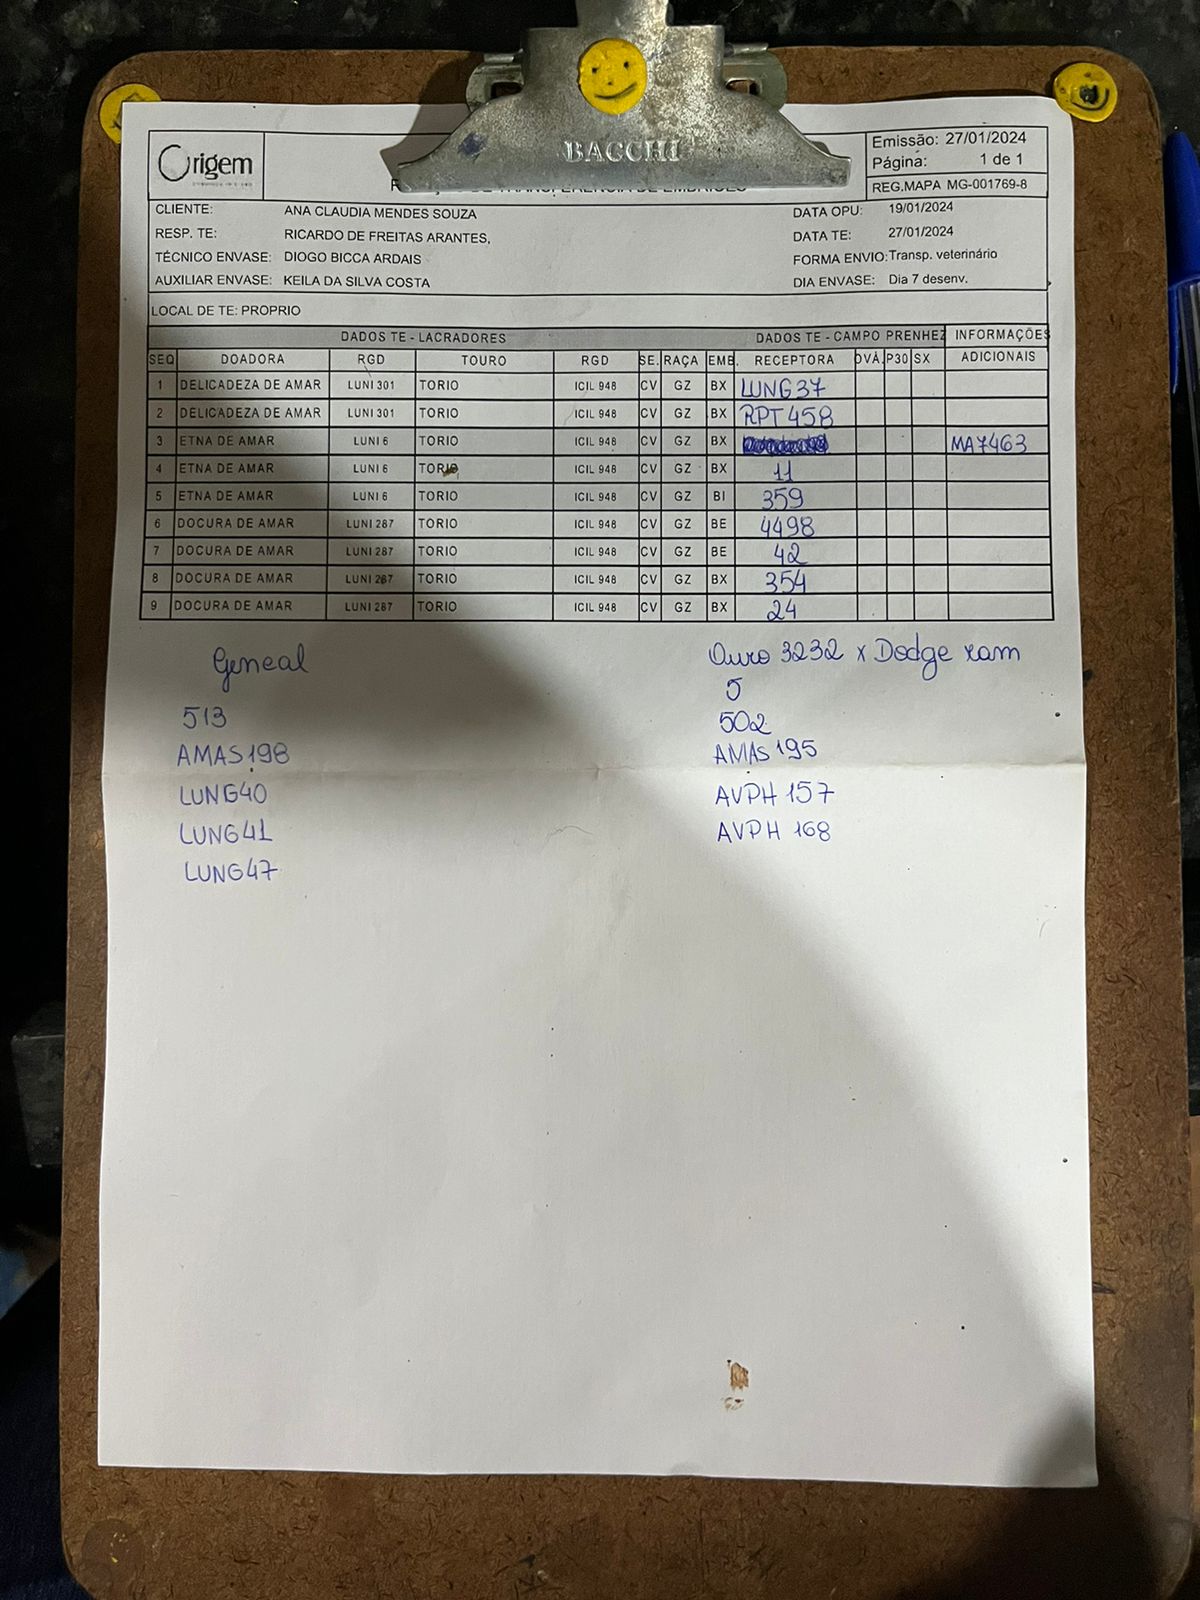 BACCHI
Origem
TRANSFERÊNCIA DE EMBRIÕES
Emissão: 27/01/2024
Página: 1 de 1
REG.MAPA MG-001769-8
CLIENTE: ANA CLAUDIA MENDES SOUZA DATA OPU: 19/01/2024
RESP. TE: RICARDO DE FREITAS ARANTES, DATA TE: 27/01/2024
TÉCNICO ENVASE: DIOGO BICCA ARDAIS FORMA ENVIO: Transp. veterinário
AUXILIAR ENVASE: KEILA DA SILVA COSTA DIA ENVASE: Dia 7 desenv.
LOCAL DE TE: PROPRIO
DADOS TE - LACRADORES DADOS TE - CAMPO PRENHEZ INFORMAÇÕES
SEQ DOADORA RGD TOURO RGD SE. RAÇA EMB. RECEPTORA OVÁ. P30 SX ADICIONAIS
1 DELICADEZA DE AMAR LUNI 301 TORIO ICIL 948 CV GZ BX LUNG37
2 DELICADEZA DE AMAR LUNI 301 TORIO ICIL 948 CV GZ BX RPT458
3 ETNA DE AMAR LUNI 6 TORIO ICIL 948 CV GZ BX MA7463
4 ETNA DE AMAR LUNI 6 TORIO ICIL 948 CV GZ BX 11
5 ETNA DE AMAR LUNI 6 TORIO ICIL 948 CV GZ BI 359
6 DOCURA DE AMAR LUNI 287 TORIO ICIL 948 CV GZ BE 4498
7 DOCURA DE AMAR LUNI 287 TORIO ICIL 948 CV GZ BE 42
8 DOCURA DE AMAR LUNI 287 TORIO ICIL 948 CV GZ BX 354
9 DOCURA DE AMAR LUNI 287 TORIO ICIL 948 CV GZ BX 24
Geneal
513
AMAS198
LUNG40
LUNG41
LUNG47
Ouro 3232 x Dodge ram
5
502
AMAS195
AVPH 157
AVPH 168